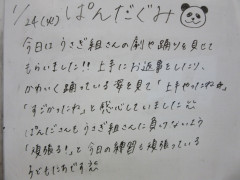 1/24(火) ぱんだぐみ
今日はうさぎ組さんの劇や踊りを見せて
もらいました!! 上手にお返事をしたり、
かわいく踊っている姿を見て「上手やったねぇ」
「すごかったね」と感心していました
ぱんださんもうさぎ組さんに負けないよう
「頑張る!」と今日の練習も頑張っている
子どもたちです